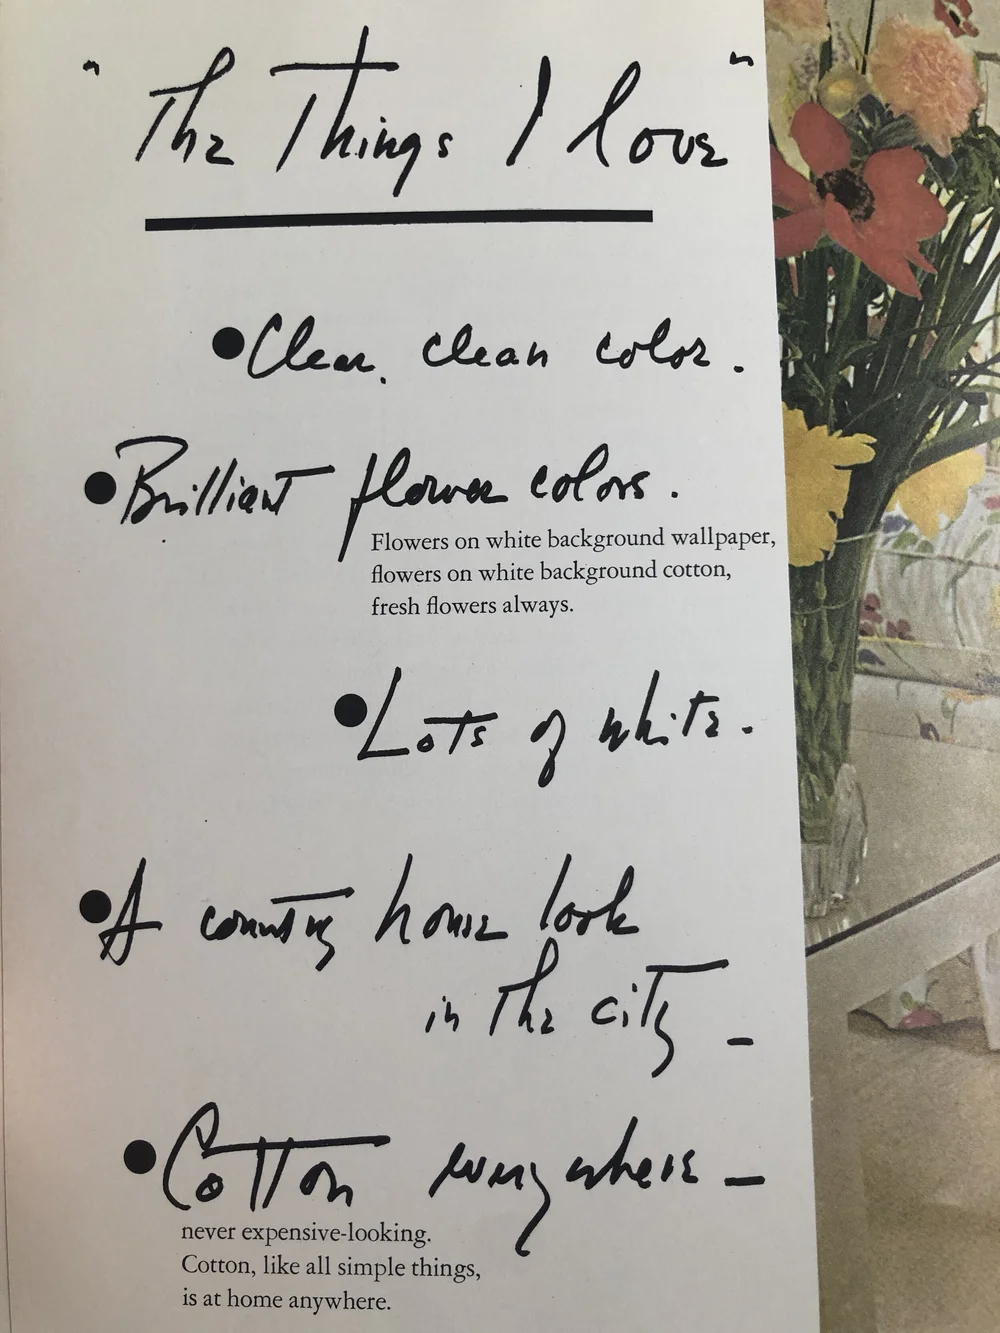 "The Things I love"
• Clear, clean color.
• Brilliant flower colors.
Flowers on white background wallpaper,
flowers on white background cotton,
fresh flowers always.
• Lots of white.
• A country house look
in the city –
• Cotton everywhere –
never expensive-looking.
Cotton, like all simple things,
is at home anywhere.